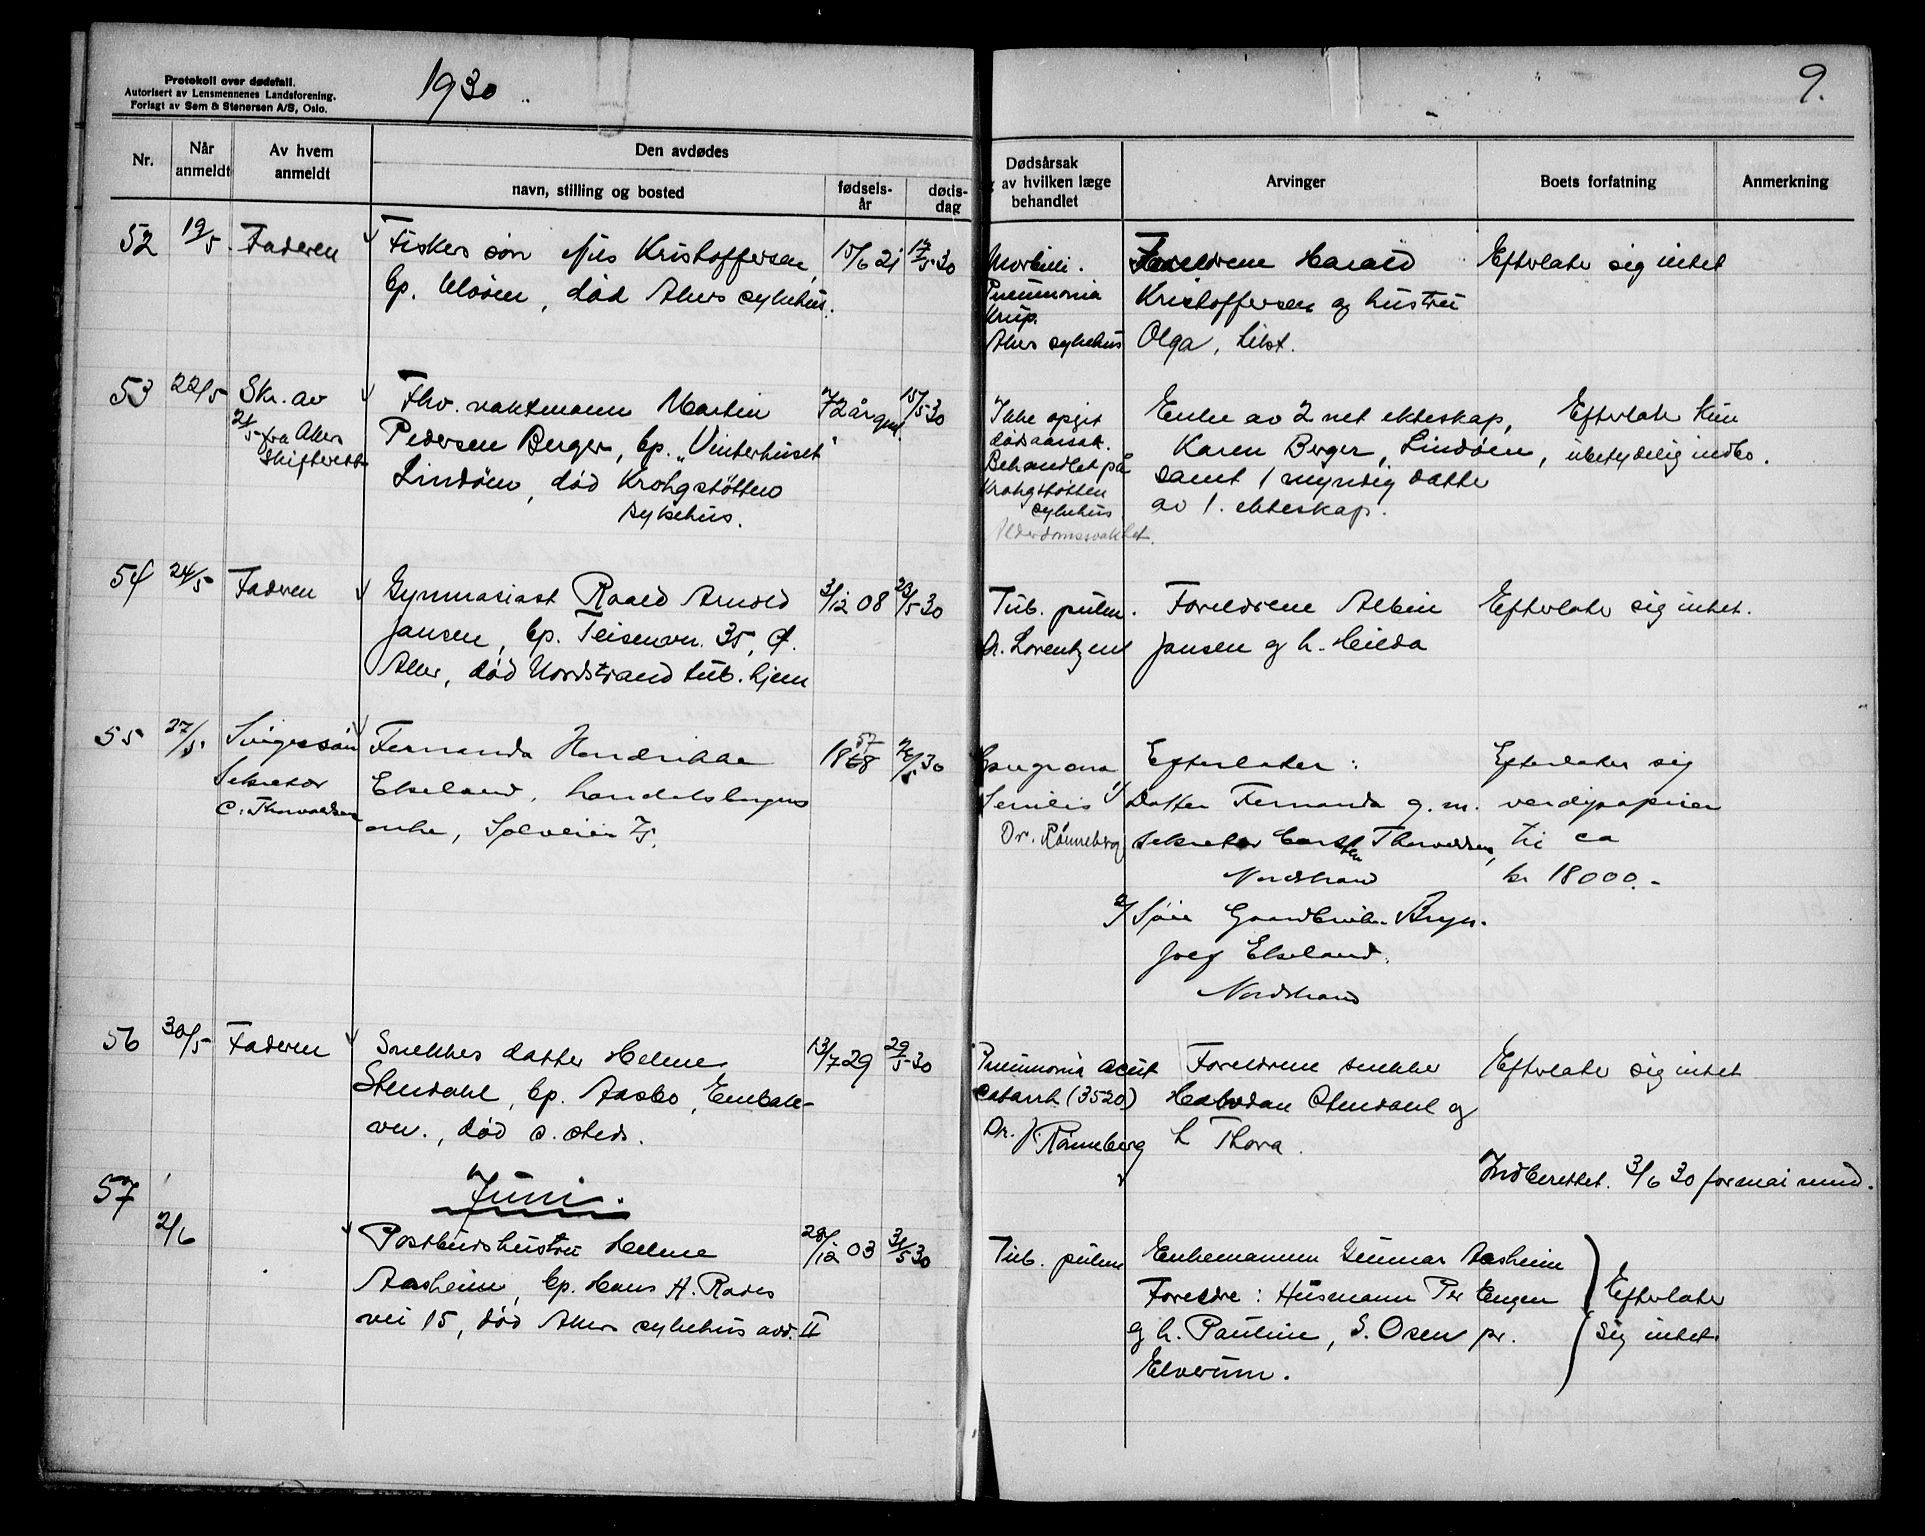 Protokoll over dødsfall.
Autorisert av Lensmennenes Landsforening.
Forlagt av Sem & Stenersen A/S, Oslo.
1930
9.
Nr.
Når anmeldt
Av hvem anmeldt
Den avdødes
navn, stilling og bosted
fødsels-år
døds-dag
Dødsårsak
av hvilken læge
behandlet
Arvinger
Boets forfatning
Anmerkning
52 19/5 Faderen
Fiskers søn Nils Kristoffersen,
bp. Ulvøen, død Akers sykehus.
15/6 21 17/5 30
Morbilli.
Pneumonia
Krup.
Akers sykehus
Foreldrene Harald
Kristoffersen og hustru
Olga, Libst.
Efterlater sig intet
53 22/5 Skr. av
21/5 fra Akers
skifterett
Fhv. vaktmann Martin
Pedersen Berger, bp. "Vinterhuset"
Lindøen, død Krohgstøtten
sykehus.
72 år gml. 15/5 30
Ikke opgit
dødsaarsak.
Behandlet på
Krohgstøtten
sykehus
Alderdomssvakhet.
Enke av 2net ekteskap,
Karen Berger, Lindøen,
samt 1 myndig datter
av 1. ekteskap.
Efterlater kun
ubetydelig indbo.
54 24/5 Faderen
Gymnasiast Roald Arnold
Jansen, bp. Teisenvn. 35, Ø.
Aker, død Nordstrand tub. hjem
3/12 08 23/5 30
Tub. pulm.
Dr. Lorentzen
Foreldrene Albin
Jansen og h. Hilda
Efterlater sig intet.
55 27/5 Svigersøn
Sekretær
C. Thorvaldsen
Fernanda Hendrikke
Ekeland, handelsborgers
enke, Solveien 75.
1868 57 26/5 30
Gangrena
Senilis
Dr. Rønneberg
Efterlater:
1/ Datter Fernanda g. m.
sekretær Carsten Thorvaldsen,
Nordstrand
2/ Søn Gaardbruker Bryn-
jolf Ekeland,
Nordstrand
Efterlater sig
verdipapirer
til ca
kr 18000.-
56 30/5 Faderen
Snekkers datter Helene
Stendahl, bp. Aasbo, Enebakk-
vn., død s. steds.
13/7 29 29/5 30
Pneumonia acut
catarrh (3520)
Dr. J. Rønneberg
Foreldrene snekker
Halvdan Stendahl og
h Thora.
Efterlater sig intet
Indberettet 3/6 30 for mai mnd.
Juni.
57 2/6
Postbudshustru Helene
Aasheim, bp. Hans H. Rodes
vei 15, død Akers sykehus avd. II
28/12 03 31/5 30
Tub. pulm
Enkemannen Gunnar Aasheim
Foreldre: Husmann Per Engen
og h. Pauline, S. Osen pr.
Elverum.
Efterlater
sig intet.